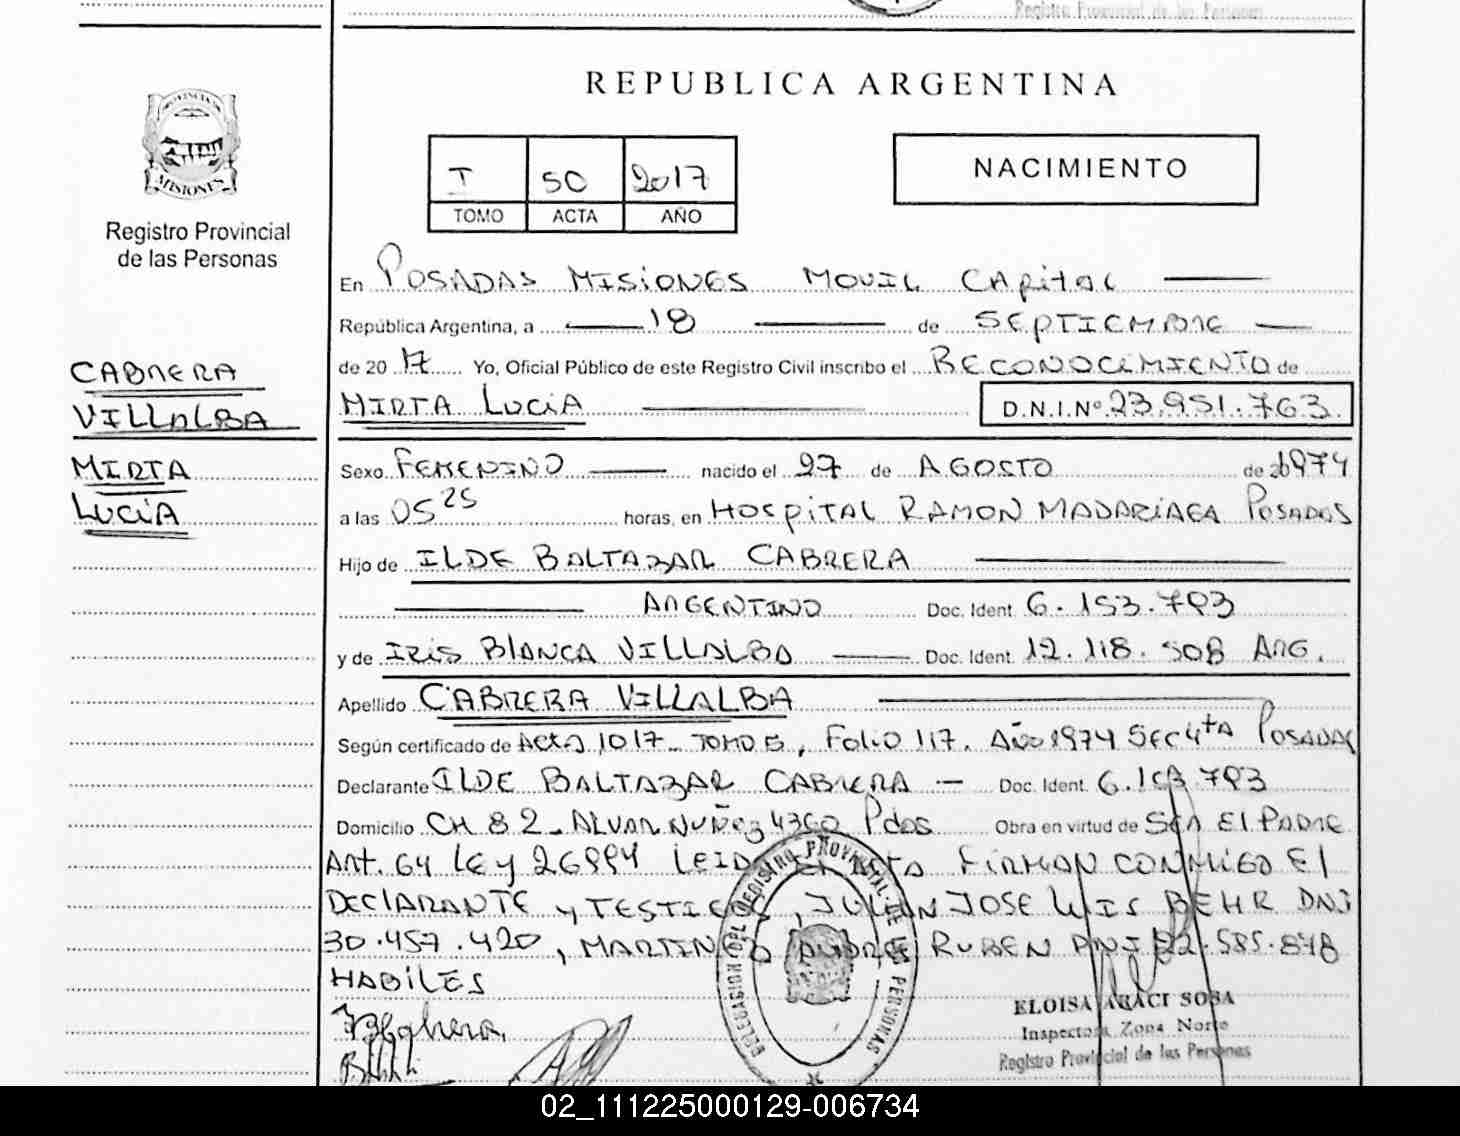 Registro Provincial de las Personas
REPUBLICA ARGENTINA
PROVINCIA DE
MISIONES
Registro Provincial
de las Personas
I 50 2017
TOMO ACTA AÑO
NACIMIENTO
En POSADAS MISIONES MOVIL CAPITAL
República Argentina, a 18 de SEPTIEMBRE
de 2017 Yo, Oficial Público de este Registro Civil inscribo el RECONOCIMIENTO de
MIRTA LUCIA D.N.I.Nº 23.951.763
CABRERA
VILLALBA
MIRTA
LUCIA
Sexo FEMENINO nacido el 27 de AGOSTO de 1974
a las 05 25 horas, en HOSPITAL RAMON MADARIAGA POSADAS
Hijo de ILDE BALTAZAR CABRERA
ARGENTINO Doc. Ident. 6.153.793
y de IRIS BLANCA VILLALBA Doc. Ident. 12.118.508 ARG.
Apellido CABRERA VILLALBA
Según certificado de ACTA 1017 TOMO 5, FOLIO 117. AÑO 1974 SEC 4TA POSADAS
Declarante ILDE BALTAZAR CABRERA Doc. Ident.
Domicilio CH 82 - ALVAR NUÑEZ 4360 Pdas Obra en virtud de SER El PADRE
ART. 64 LEY 26994 LEIDA FIRMAN CONMIGO El
DEClARANTE y TESTIGOS, JULIAN JOSE LUIS BEHR DNI
30.457.420, MARTINEZ ANDRES RUBEN DNI 22.585.878
HABILES
DELEGACION DEL REGISTRO PROVINCIAL DE LAS PERSONAS
ELOISA ARACI SOSA
Inspectora Zona Norte
Registro Provincial de las Personas
02_111225000129-006734